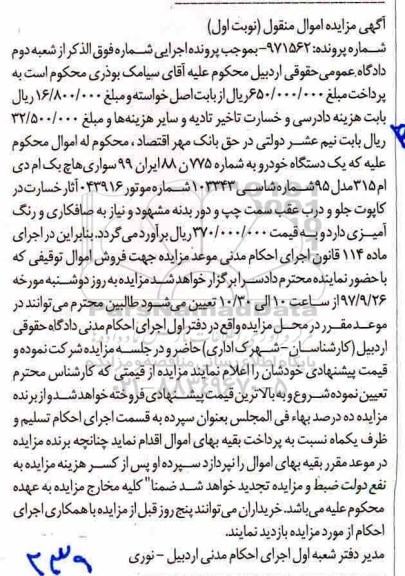 آگهی مزایده اموال منقول (نوبت اول)
شماره پرونده: ۹۷۱۵۶۲- بموجب پرونده اجرایی شماره فوق الذکر از شعبه دوم
دادگاه عمومی حقوقی اردبیل محکوم علیه آقای سیامک بوذری محکوم است به
پرداخت مبلغ ۶۵۰/۰۰۰/۰۰۰ ریال از بابت اصل خواسته و مبلغ ۱۶/۸۰۰/۰۰۰ ریال
بابت هزینه دادرسی و خسارت تاخیر تادیه و سایر هزینه‌ها و مبلغ ۳۲/۵۰۰/۰۰۰
ریال بابت نیم عشر دولتی در حق بانک مهر اقتصاد ، محکوم له اموال محکوم
علیه که یک دستگاه خودرو به شماره ۷۷۵ ن ۸۸ ایران ۹۹ سواری هاچ بک ام دی
ام ۳۱۵ مدل ۹۵ شماره شاسی ۱۰۳۳۴۳ شماره موتور ۰۴۳۹۱۶ آثار خسارت در
کاپوت جلو و درب عقب سمت چپ و دور بدنه مشهود و نیاز به صافکاری و رنگ
آمیزی دارد و به قیمت ۳۷۰/۰۰۰/۰۰۰ ریال برآورد می گردد. بنابراین در اجرای
ماده ۱۱۴ قانون اجرای احکام مدنی موعد مزایده جهت فروش اموال توقیفی که
با حضور نماینده محترم دادسرا برگزار خواهد شد مزایده به روز دوشنبه مورخه
۹۷/۹/۲۶ از ساعت ۱۰ الی ۱۰/۳۰ تعیین می‌شود طالبین محترم می‌توانند در
موعد مقرر در محل مزایده واقع در دفتر اول اجرای احکام مدنی دادگاه حقوقی
اردبیل (کارشناسان - شهرک اداری) حاضر و در جلسه مزایده شرکت نموده و
قیمت پیشنهادی خودشان را اعلام نمایند مزایده از قیمتی که کارشناس محترم
تعیین نموده شروع و به بالاترین قیمت پیشنهادی فروخته خواهد شد و از برنده
مزایده ده درصد بهاء فی المجلس بعنوان سپرده به قسمت اجرای احکام تسلیم و
ظرف یکماه نسبت به پرداخت بقیه بهای اموال اقدام نماید چنانچه برنده مزایده
در موعد مقرر بقیه بهای اموال را نپردازد سپرده او پس از کسر هزینه مزایده به
نفع دولت ضبط و مزایده تجدید خواهد شد ضمنا" کلیه مخارج مزایده به عهده
محکوم علیه می‌باشد. خریداران می‌توانند پنج روز قبل از مزایده با همکاری اجرای
احکام از مورد مزایده بازدید نمایند.
مدیر دفتر شعبه اول اجرای احکام مدنی اردبیل - نوری
۲۳۹